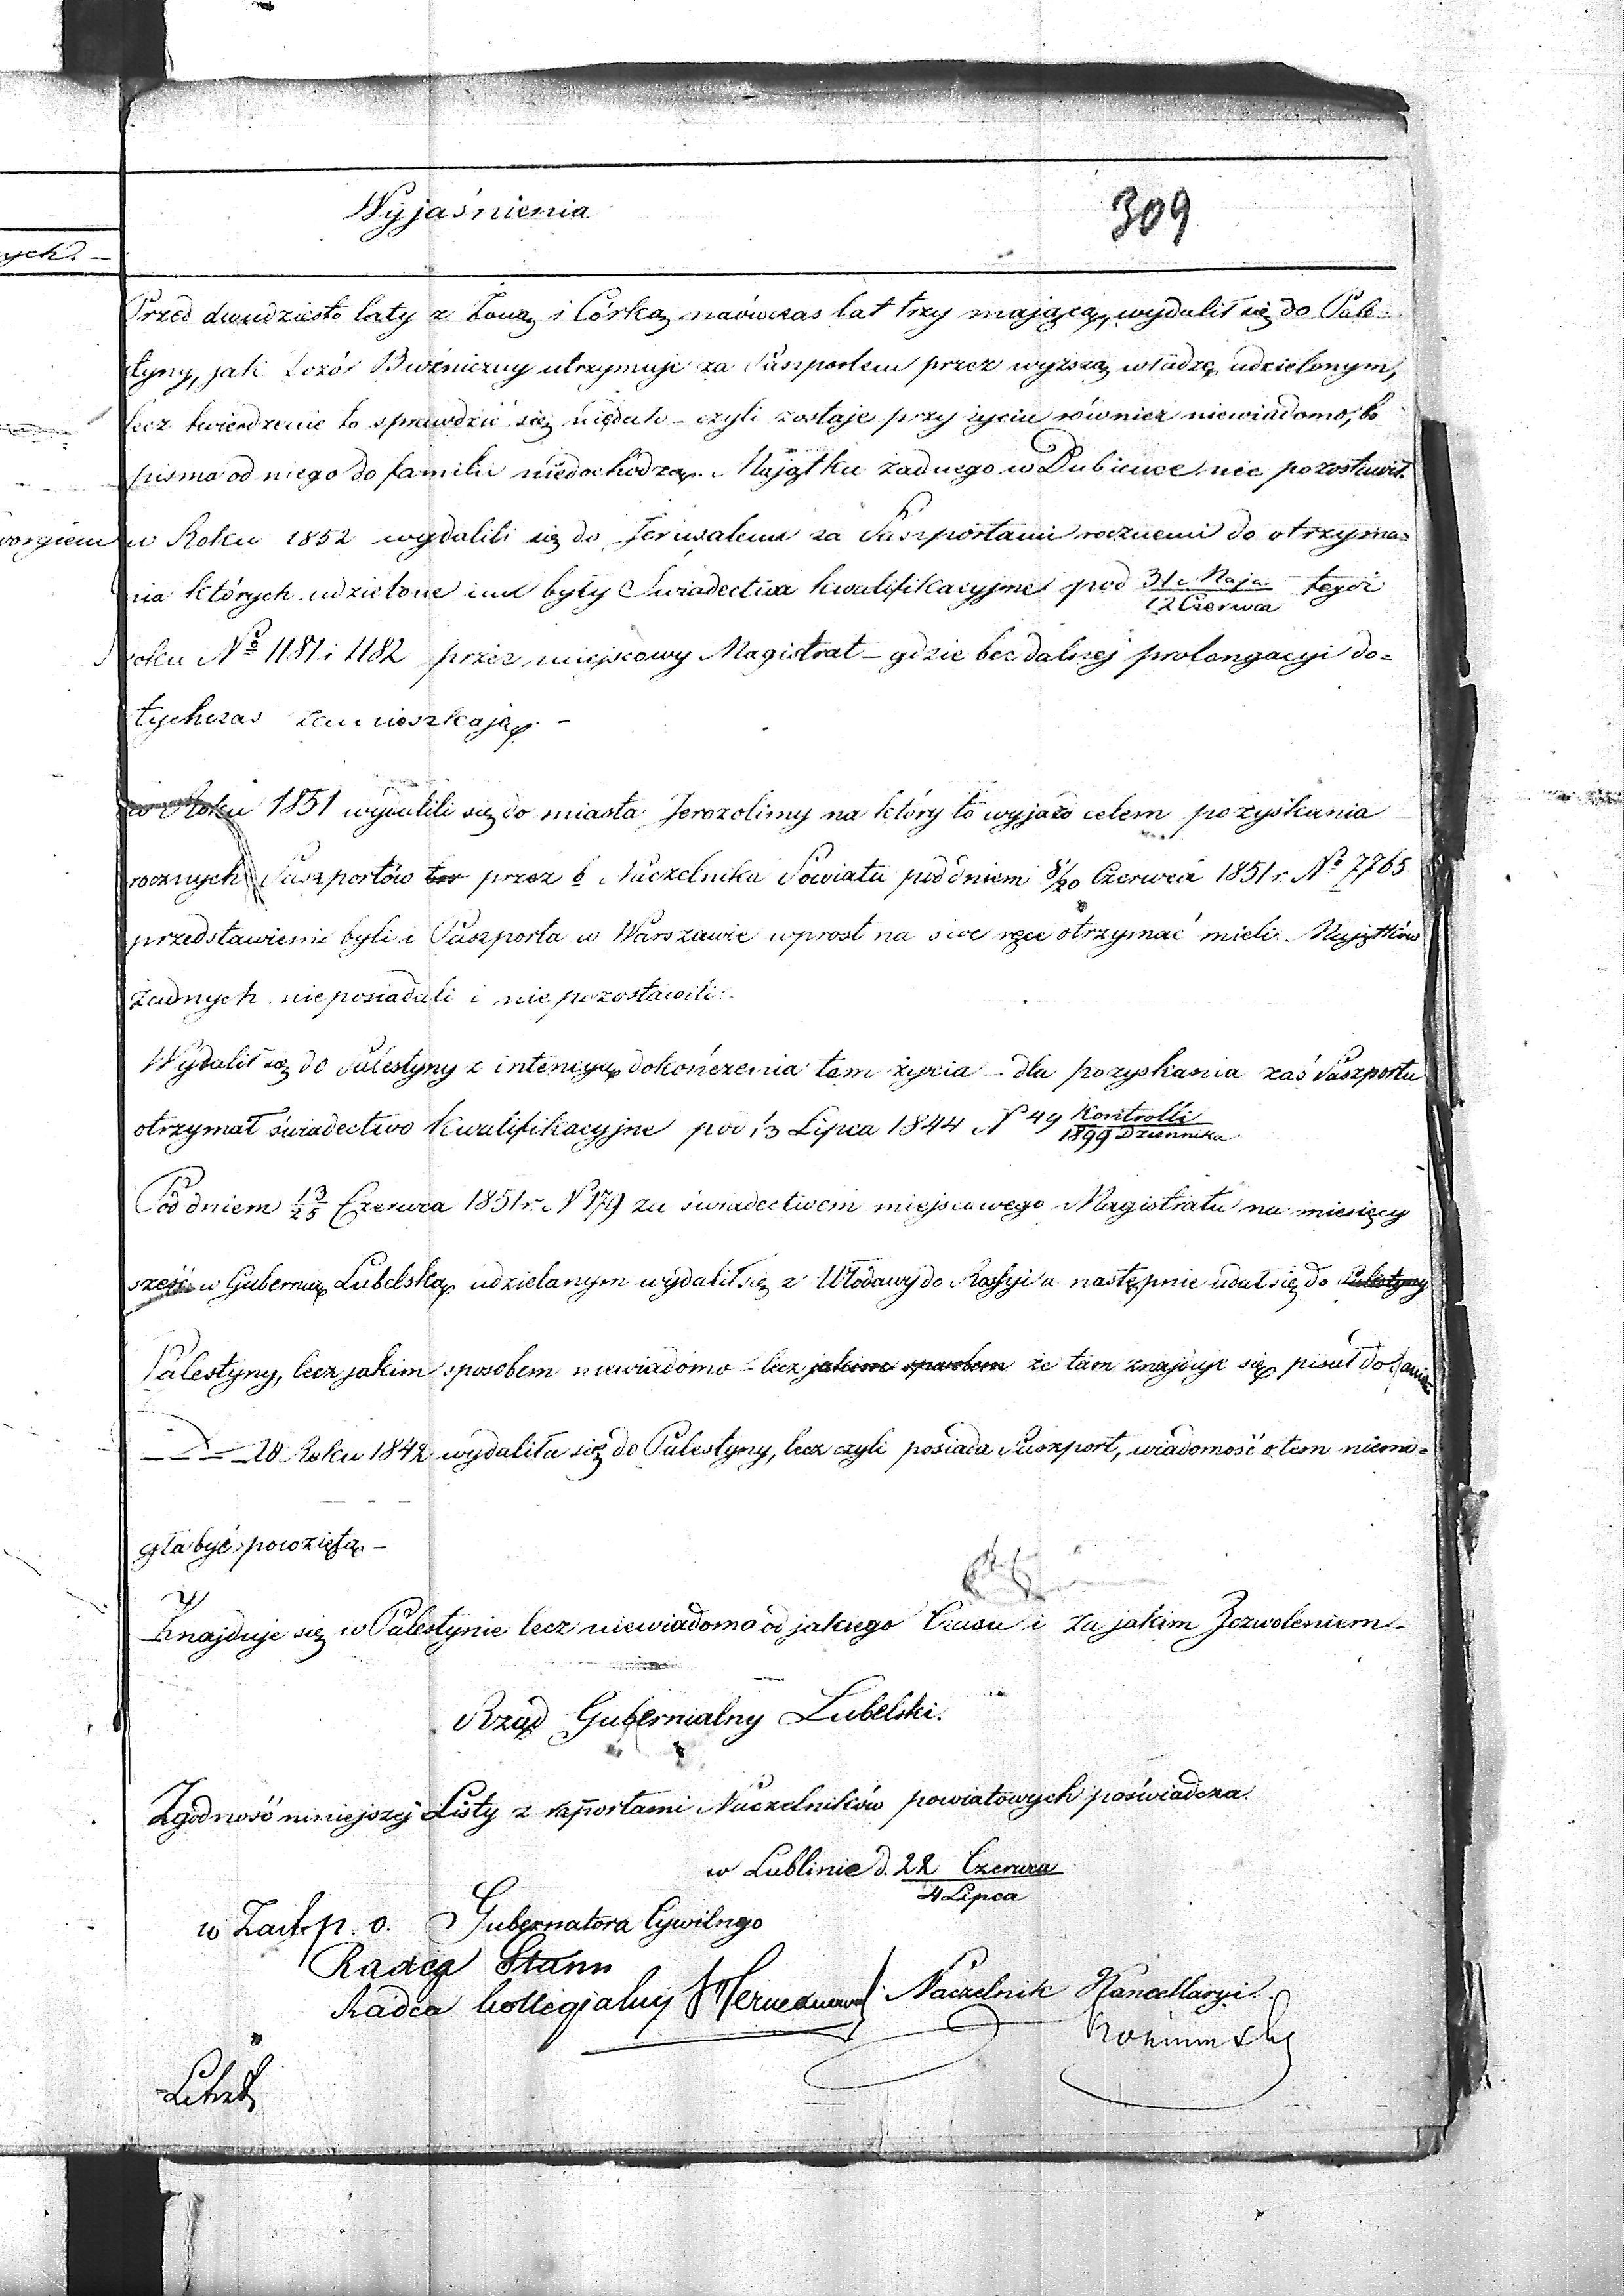 Wyjaśnienia
309
ych. -
Przed dwudziesto laty z Żoną i Córką naówczas lat trzy mającą, wydalił się do Pale-
styny, jak Dozór Bóżniczny utrzymuje za Paszportem przez wyższą władzę udzielonym,
lecz twierdzenie to sprawdzić się niedało - czyli zostaje przy życiu również niewiadomo, bo
pisma od niego do familii niedochodzą. Majątku żadnego w Dubience nie pozostawił.
w Roku 1852 wydalili się do Jerusalem za Paszportami rocznemi do otrzyma=
nia których udzielone im były Swiadectwa kwalifikacyjne pod 31 Maja / 12 Czerwca tegoż
roku No 1181 i 1182 przez miejscowy Magistrat - gdzie bez dalszej prolongacyi do=
tychczas zamieszkają. -
w Roku 1851 wydalili się do miasta Jerozolimy na który to wyjazd celem pozyskania
rocznych Paszportów przez b Naczelnika Powiatu pod dniem 8/20 Czerwca 1851 r. No 7765
przedstawieni byli i Paszporta w Warszawie wprost na swe ręce otrzymać mieli. Majątków
żadnych nieposiadali i nie pozostawili.
Wydalił się do Palestyny z intencyą dokończenia tam życia - dla pozyskania zaś Paszportu
otrzymał świadectwo Kwalifikacyjne pod 13 Lipca 1844 N 49 Kontrolli / 1899 Dziennika
Pod dniem 13/25 Czerwca 1851 r. N 179 za świadectwem miejscowego Magistratu na miesięcy
sześć w Gubernią Lubelską udzielanym wydalił się z Włodawy do Rossyi a następnie udał się do Palestyny
Palestyny, lecz jakim sposobem niewiadomo - lecz jakim sposobem że tam znajduje się pisał do familii
W Roku 1842 wydaliła się do Palestyny, lecz czyli posiada Paszport, wiadomość o tem niemo=
gła być powziętą. -
Znajduje się w Palestynie lecz niewiadomo od jakiego Czasu i za jakim Zezwoleniem -
Rząd Gubernialny Lubelski.
Zgodność niniejszej Listy z raportami Naczelników powiatowych poświadcza.
w Lublinie d. 22 Czerwca / 4 Lipca
w Zast. p. o. Gubernatora Cywilngo
Radca Stanu
Radca Kollegialny
Naczelnik Kancellaryi